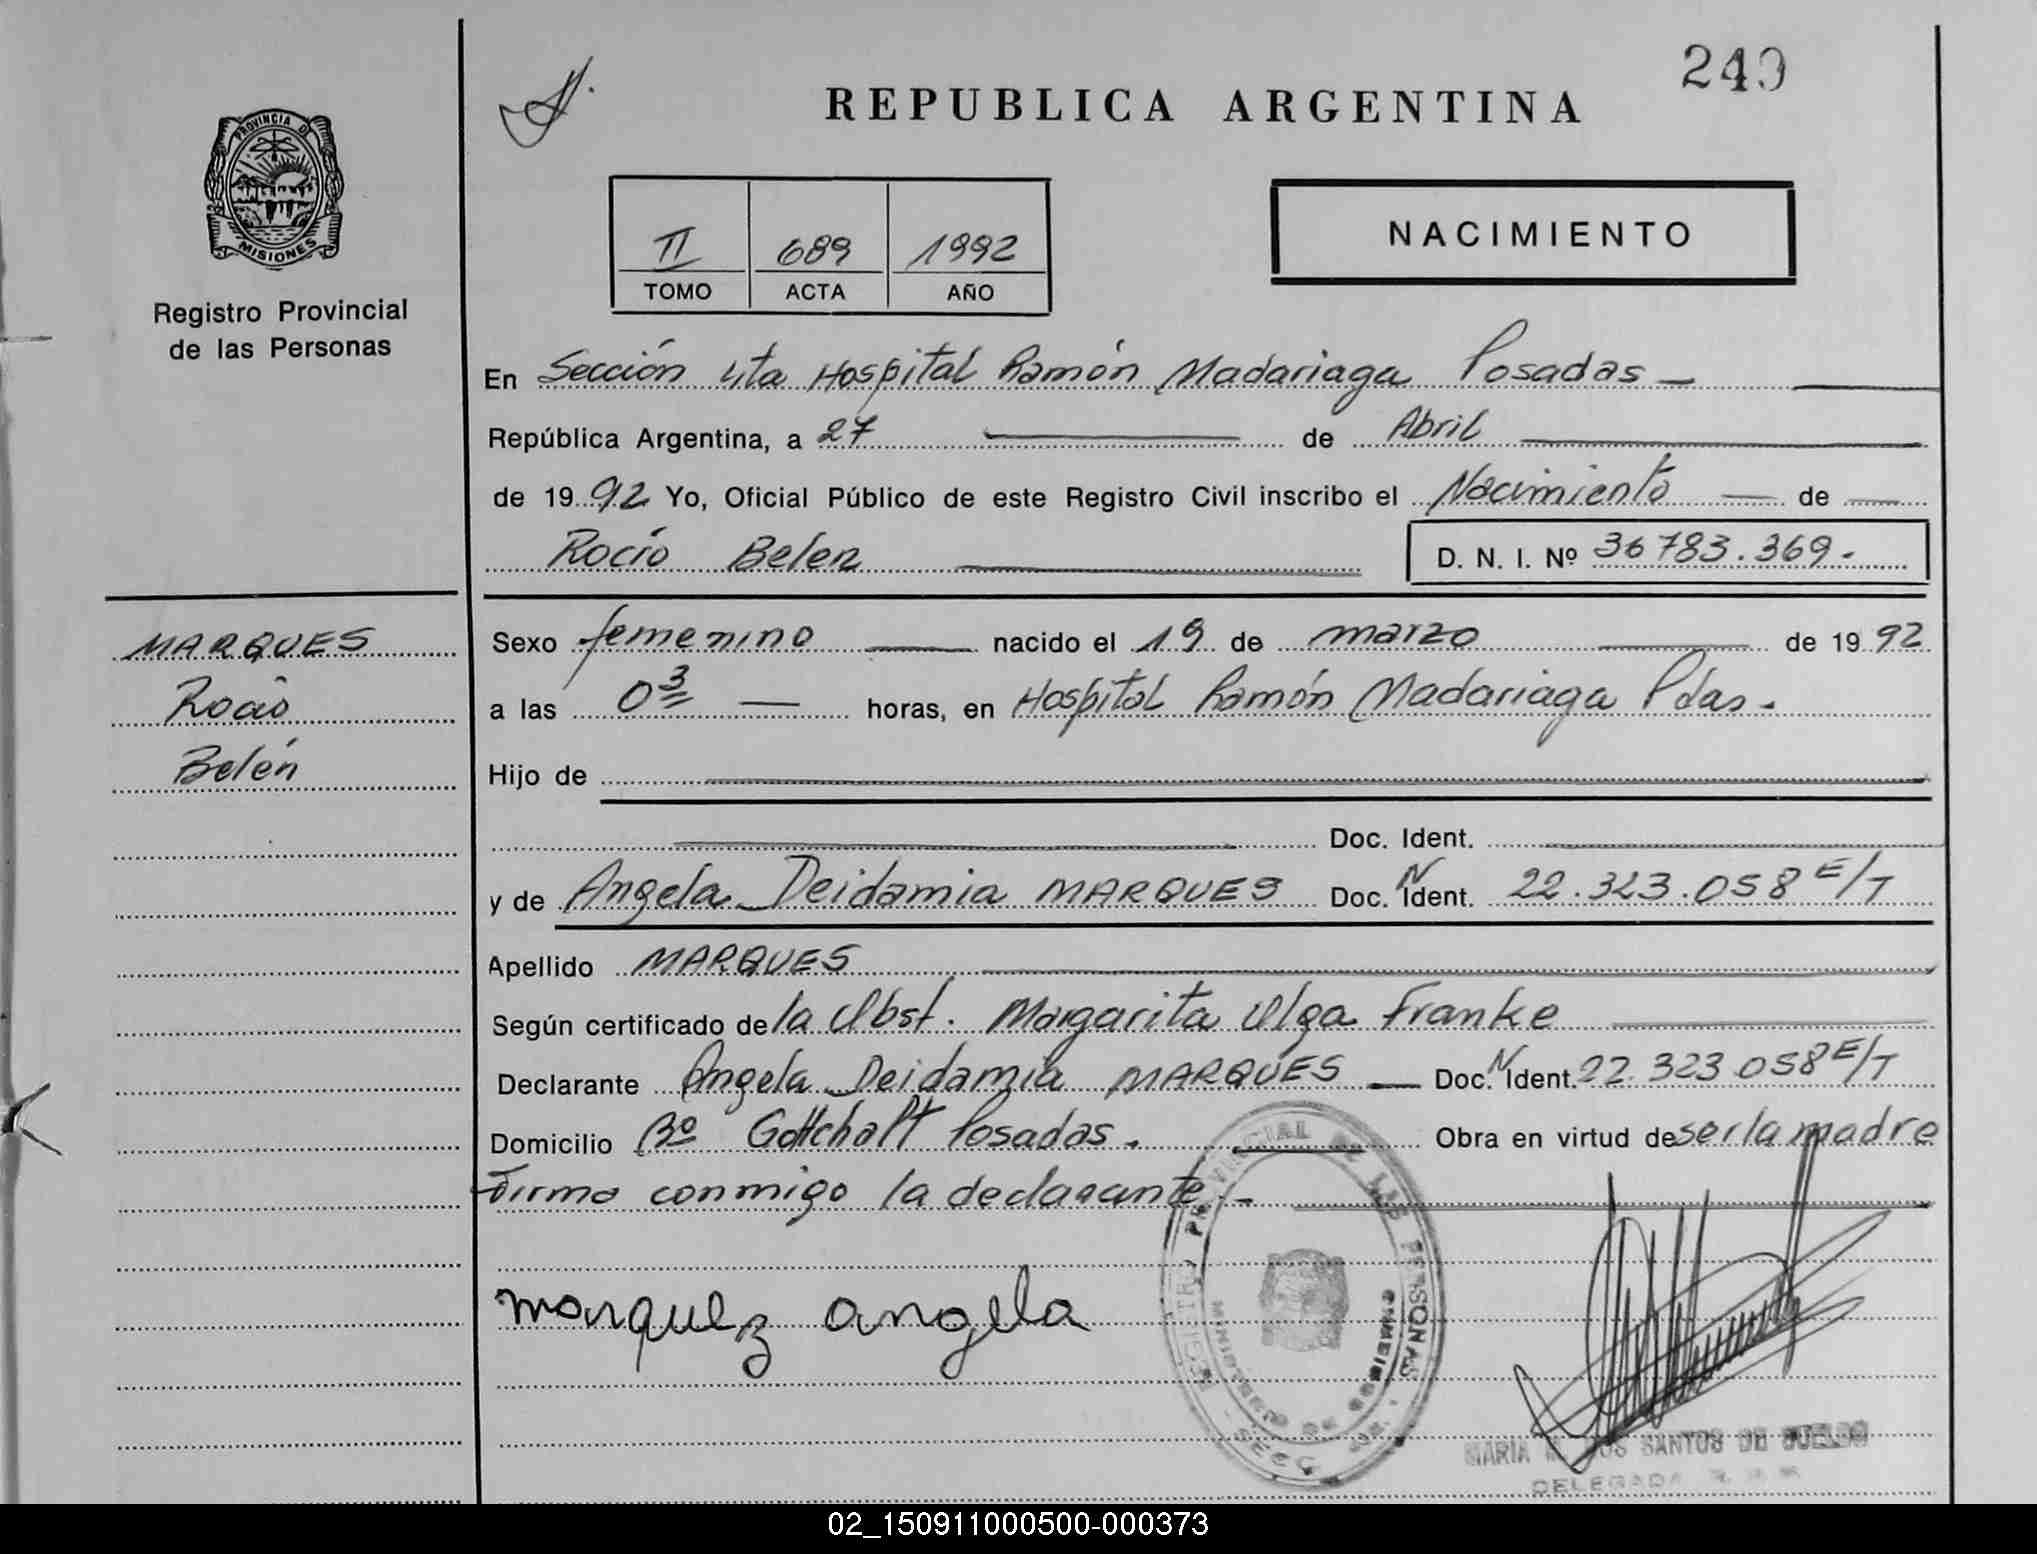 240
REPUBLICA ARGENTINA
PROVINCIA DE
MISIONES
Registro Provincial
de las Personas
II 689 1992
TOMO ACTA AÑO
NACIMIENTO
En Sección 4ta Hospital Ramón Madariaga Posadas
República Argentina, a 27 de Abril
de 1992 Yo, Oficial Público de este Registro Civil inscribo el Nacimiento de
Rocío Belen D. N. I. Nº 36783.369.
MARQUES
Rocío
Belén
Sexo femenino nacido el 19 de marzo de 1992
a las 0 3 horas, en Hospital Ramón Madariaga Pdas.
Hijo de
Doc. Ident.
y de Angela Deidamia MARQUES Doc. N Ident. 22.323.058 E/T
Apellido MARQUES
Según certificado de la Obst. Margarita Olga Franke
Declarante Angela Deidamia MARQUES Doc. N Ident. 22.323.058 E/T
Domicilio Bº Posadas. Obra en virtud de ser la madre
Firma conmigo la declarante.
marquez angela
REGISTRO PROVINCIAL DE LAS PERSONAS
MARIA DOS SANTOS DE
DELEGADA
02_150911000500-000373